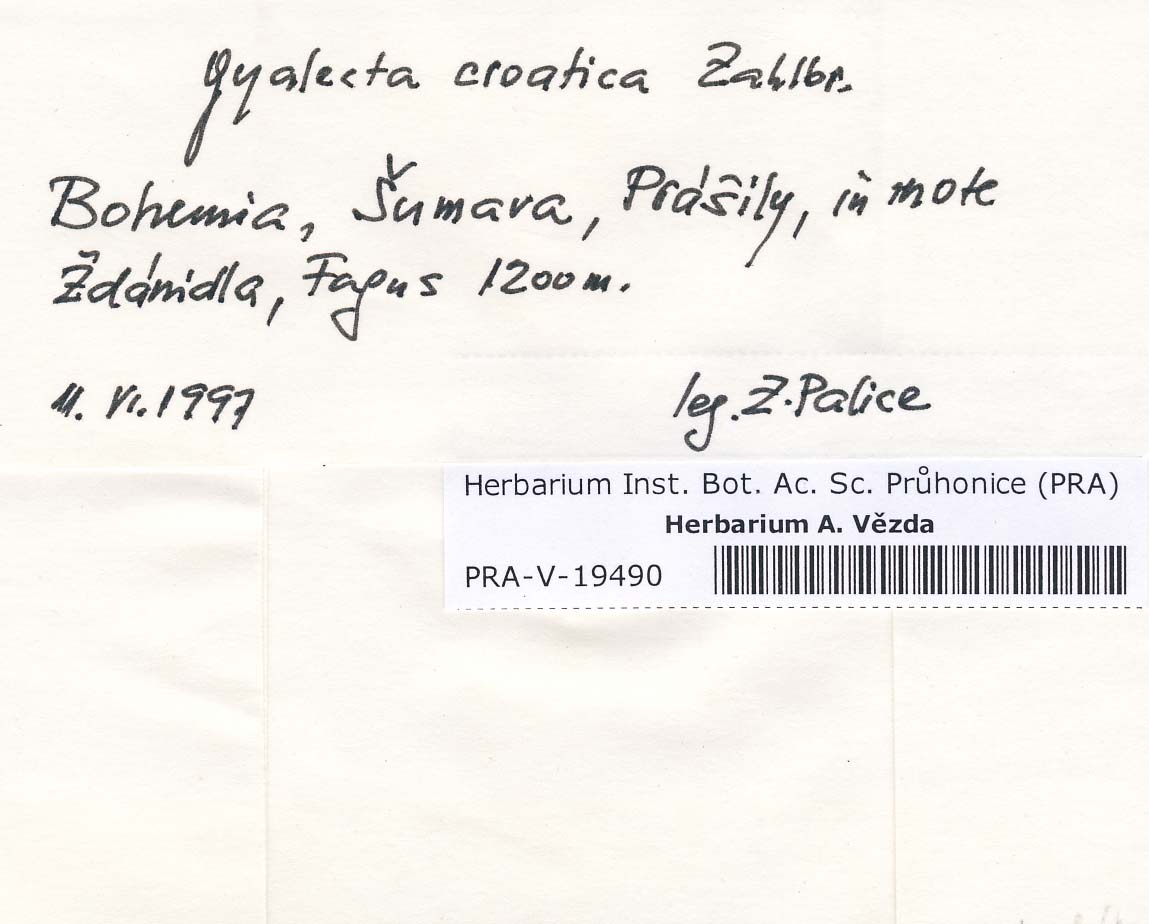 Gyalecta croatica Zahlbr.
Bohemia, Šumava, Prášily, in mote
Ždánidla, Fagus 1200 m.
11. VI. 1997
leg. Z. Palice
Herbarium Inst. Bot. Ac. Sc. Průhonice (PRA)
Herbarium A. Vězda
PRA-V-19490